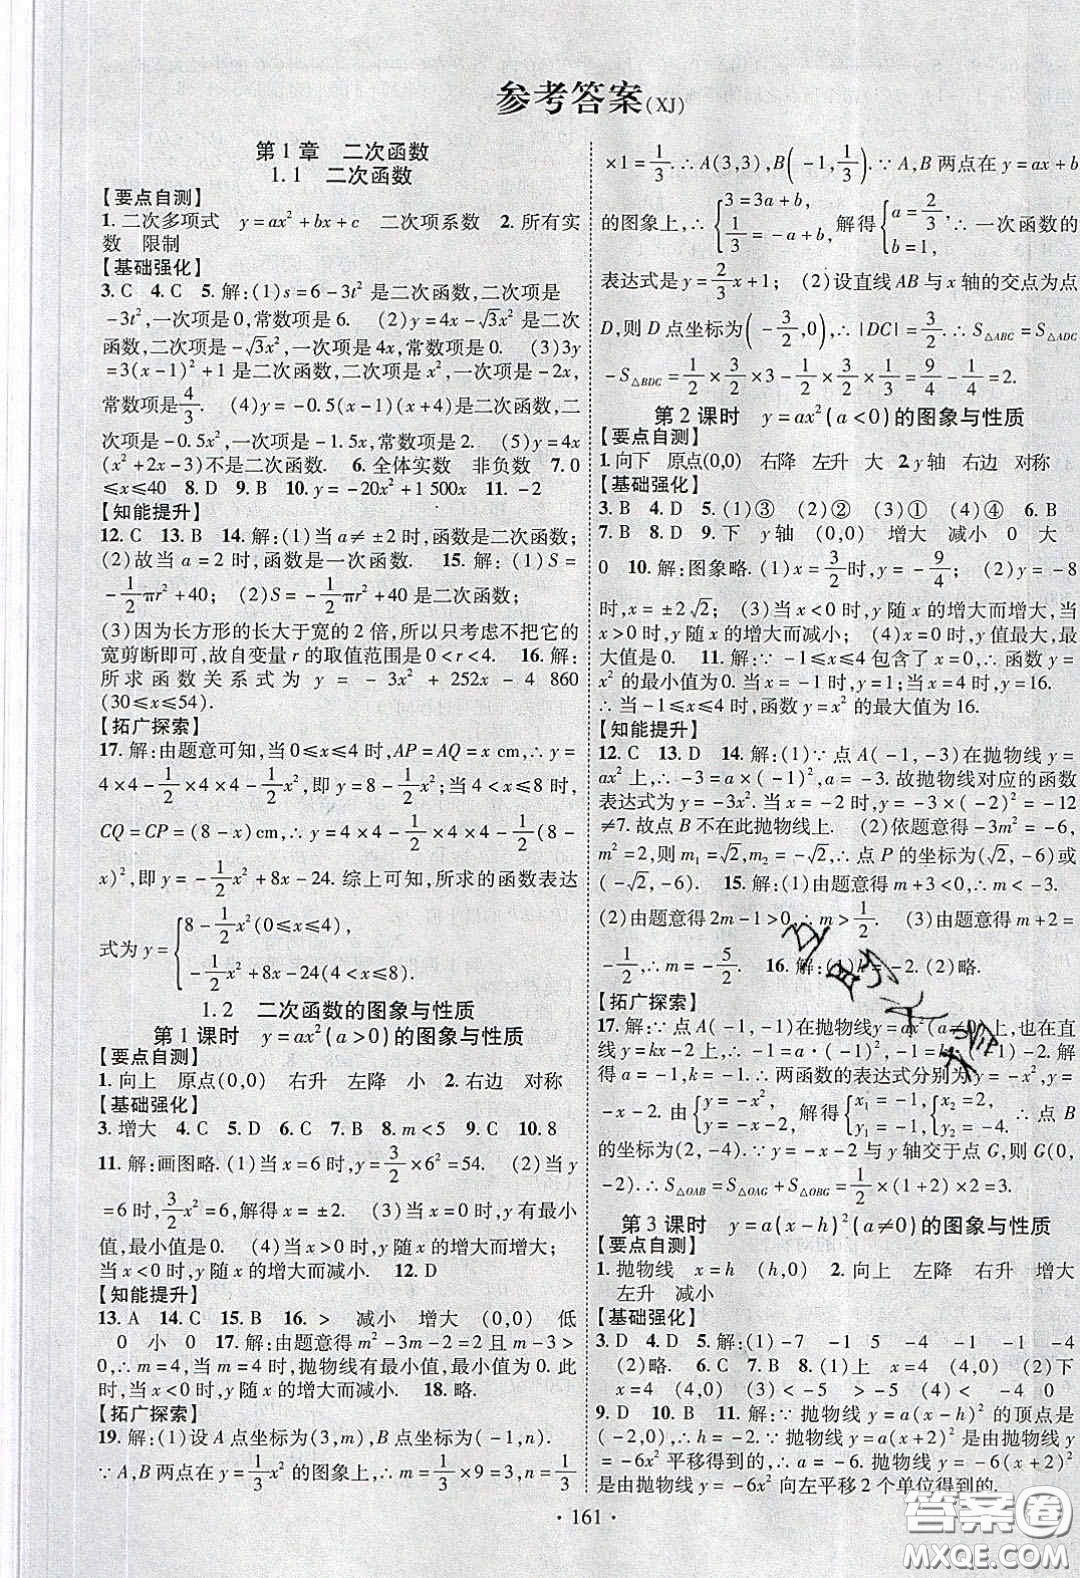 参考答案(XJ)
第1章 二次函数
1.1 二次函数
【要点自测】
1.二次多项式 y=ax²+bx+c 二次项系数 2.所有实
数 限制
【基础强化】
3.C 4.C 5.解:(1)s=6-3t²是二次函数,二次项是
-3t²,一次项是0,常数项是6. (2)y=4x-√3x²是二次
函数,二次项是-√3x²,一次项是4x,常数项是0. (3)3y
=3(x-1)²+1是二次函数,二次项是x²,一次项是-2x,
常数项是4/3. (4)y=-0.5(x-1)(x+4)是二次函数,二
次项是-0.5x²,一次项是-1.5x,常数项是2. (5)y=4x
(x²+2x-3)不是二次函数. 6.全体实数 非负数 7.0
≤x≤40 8.D 9.B 10.y=-20x²+1 500x 11.-2
【知能提升】
12.C 13.B 14.解:(1)当a≠±2时,函数是二次函数;
(2)故当a=2时,函数是一次函数. 15.解:(1)S=
-1/2πr²+40; (2)S=-1/2πr²+40是二次函数;
(3)因为长方形的长大于宽的2倍,所以只考虑不把它的
宽剪断即可,故自变量r的取值范围是0<r<4. 16.解:
所求函数关系式为y=-3x²+252x-4 860
(30≤x≤54).
【拓广探索】
17.解:由题意可知,当0≤x≤4时,AP=AQ=x cm,∴y=
4×4-1/2×4×4-1/2x²,即y=8-1/2x²;当4<x≤8时,
CQ=CP=(8-x)cm,∴y=4×4-1/2×4×4-1/2(8-
x)²,即y=-1/2x²+8x-24.综上可知,所求的函数表达
式为y={8-1/2x²(0≤x≤4),
-1/2x²+8x-24(4<x≤8).
1.2 二次函数的图象与性质
第1课时 y=ax²(a>0)的图象与性质
【要点自测】
1.向上 原点(0,0) 右升 左降 小 2.右边 对称
【基础强化】
3.增大 4.C 5.D 6.C 7.B 8.m<5 9.C 10.8
11.解:画图略.(1)当x=6时,y=3/2×6²=54. (2)当y
=6时,3/2x²=6,解得x=±2. (3)当x=0时,y有最小
值,最小值是0. (4)当x>0时,y随x的增大而增大;
当x<0时,y随x的增大而减小. 12.D
【知能提升】
13.A 14.C 15.B 16.> 减小 增大 (0,0) 低
0 小 0 17.解:由题意得m²-3m-2=2且m-3>
0,∴m=4,当m=4时,抛物线有最小值,最小值为0.此
时,当x<0时,y随x的增大而减小. 18.略.
【拓广探索】
19.解:(1)设A点坐标为(3,m),B点坐标为(-1,n).
∵A,B两点在y=1/3x²的图象上,∴m=1/3×9=3,n=1/3
×1=1/3.∴A(3,3),B(-1,1/3).∵A,B两点在y=ax+b
的图象上,∴{3=3a+b, 1/3=-a+b, 解得{a=2/3, b=1, ∴一次函数的
表达式是y=2/3x+1; (2)设直线AB与x轴的交点为点
D,则D点坐标为(-3/2,0),∴|DC|=3/2.∴S△ABC=S△ADC
-S△BDC=1/2×3/2×3-1/2×3/2×1/3=9/4-1/4=2.
第2课时 y=ax²(a<0)的图象与性质
【要点自测】
1.向下 原点(0,0) 右降 左升 大 2.y轴 右边 对称
【基础强化】
3.B 4.D 5.(1)③ (2)② (3)① (4)④ 6.B
7.B 8.D 9.下 y轴 (0,0) 增大 减小 0 大
0 10.解:图象略.(1)x=3/2时,y=-9/4; (2)y=-8
时,x=±2√2; (3)当x<0时,y随x的增大而增大,当
x>0时,y随x的增大而减小; (4)x=0时,y值最大,最
大值是0. 11.解:∵-1≤x≤4包含了x=0,∴函数y=
x²的最小值为0.当x=-1时,y=1,当x=4时,y=16.
∴当-1≤x≤4时,函数y=x²的最大值为16.
【知能提升】
12.C 13.D 14.解:(1)∵点A(-1,-3)在抛物线y=
ax²上,∴-3=a×(-1)²,a=-3.故抛物线对应的函数
表达式为y=-3x².当x=-2时,y=-3×(-2)²=-12
≠7.故点B不在此抛物线上. (2)依题意得-3m²=-6,
m²=2,则m₁=√2,m₂=-√2,∴点P的坐标为(√2,-6)或
(-√2,-6). 15.解:(1)由题意得m+3<0,∴m<-3.
(2)由题意得2m-1>0,∴m>1/2. (3)由题意得m+2=
-1/2,∴m=-5/2. 16.解:(1)h=-2.(2)略.
【拓广探索】
17.解:∵点A(-1,-1)在抛物线y=ax²(a≠0)上,也在直
线y=kx-2上,∴-1=a·(-1)²,-1=k·(-1)-2.解
得a=-1,k=-1.∴两函数的表达式分别为y=-x²,y=
-x-2. 由{y=-x², y=-x-2, 解得{x₁=-1, y₁=-1, {x₂=2, y₂=-4. ∴点B
的坐标为(2,-4).∵y=-x-2与y轴交于点G,则G(0,
-2).∴S△OAB=S△OAG+S△OBG=1/2×(1+2)×2=3.
第3课时 y=a(x-h)²(a≠0)的图象与性质
【要点自测】
1.抛物线 x=h (h,0) 2.向上 左降 右升 增大
左升 减小
【基础强化】
3.D 4.D 5.解:(1)-7 -1 5 -1 5 -1 -4
(2)略. 6.C 7.B 8.(1)上 x=4 (4,0) (2)下
x=4 (4,0) (3)<-5 >-5 -5 大 -4 0
9.D 10.B 11.解:∵抛物线y=a(x-h)²的顶点是
(-2,0),∴h=-2.∵抛物线y=a(x+2)²是由抛物线y=
-6x²平移得到的,∴a=-6.∴抛物线y=-6(x+2)²
是由抛物线y=-6x²向左平移2个单位得到的.
· 161 ·
答案圈
MXQE.COM